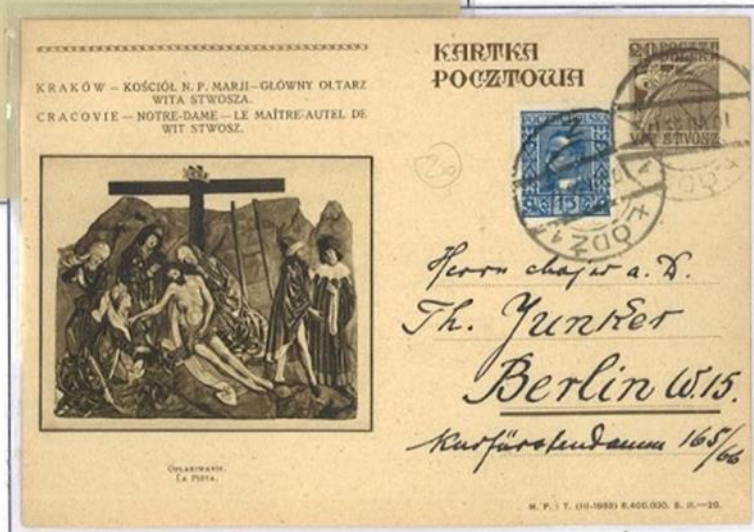 KRAKÓW — KOŚCIÓŁ N. P. MARJI — GŁÓWNY OŁTARZ
WITA STWOSZA.
CRACOVIE — NOTRE-DAME — LE MAÎTRE-AUTEL DE
WIT STWOSZ.
OPŁAKIWANIE.
LA PIETA.
KARTKA
POCZTOWA
WIT STWOSZ
POCZTA POLSKA
15
ŁÓDŹ 1
20
Herrn Major a. D.
Th. Junker
Berlin W. 15.
Kurfürstendamm 165/66
M. P. i T. (III-1933) 8.400.000. S. II.—20.